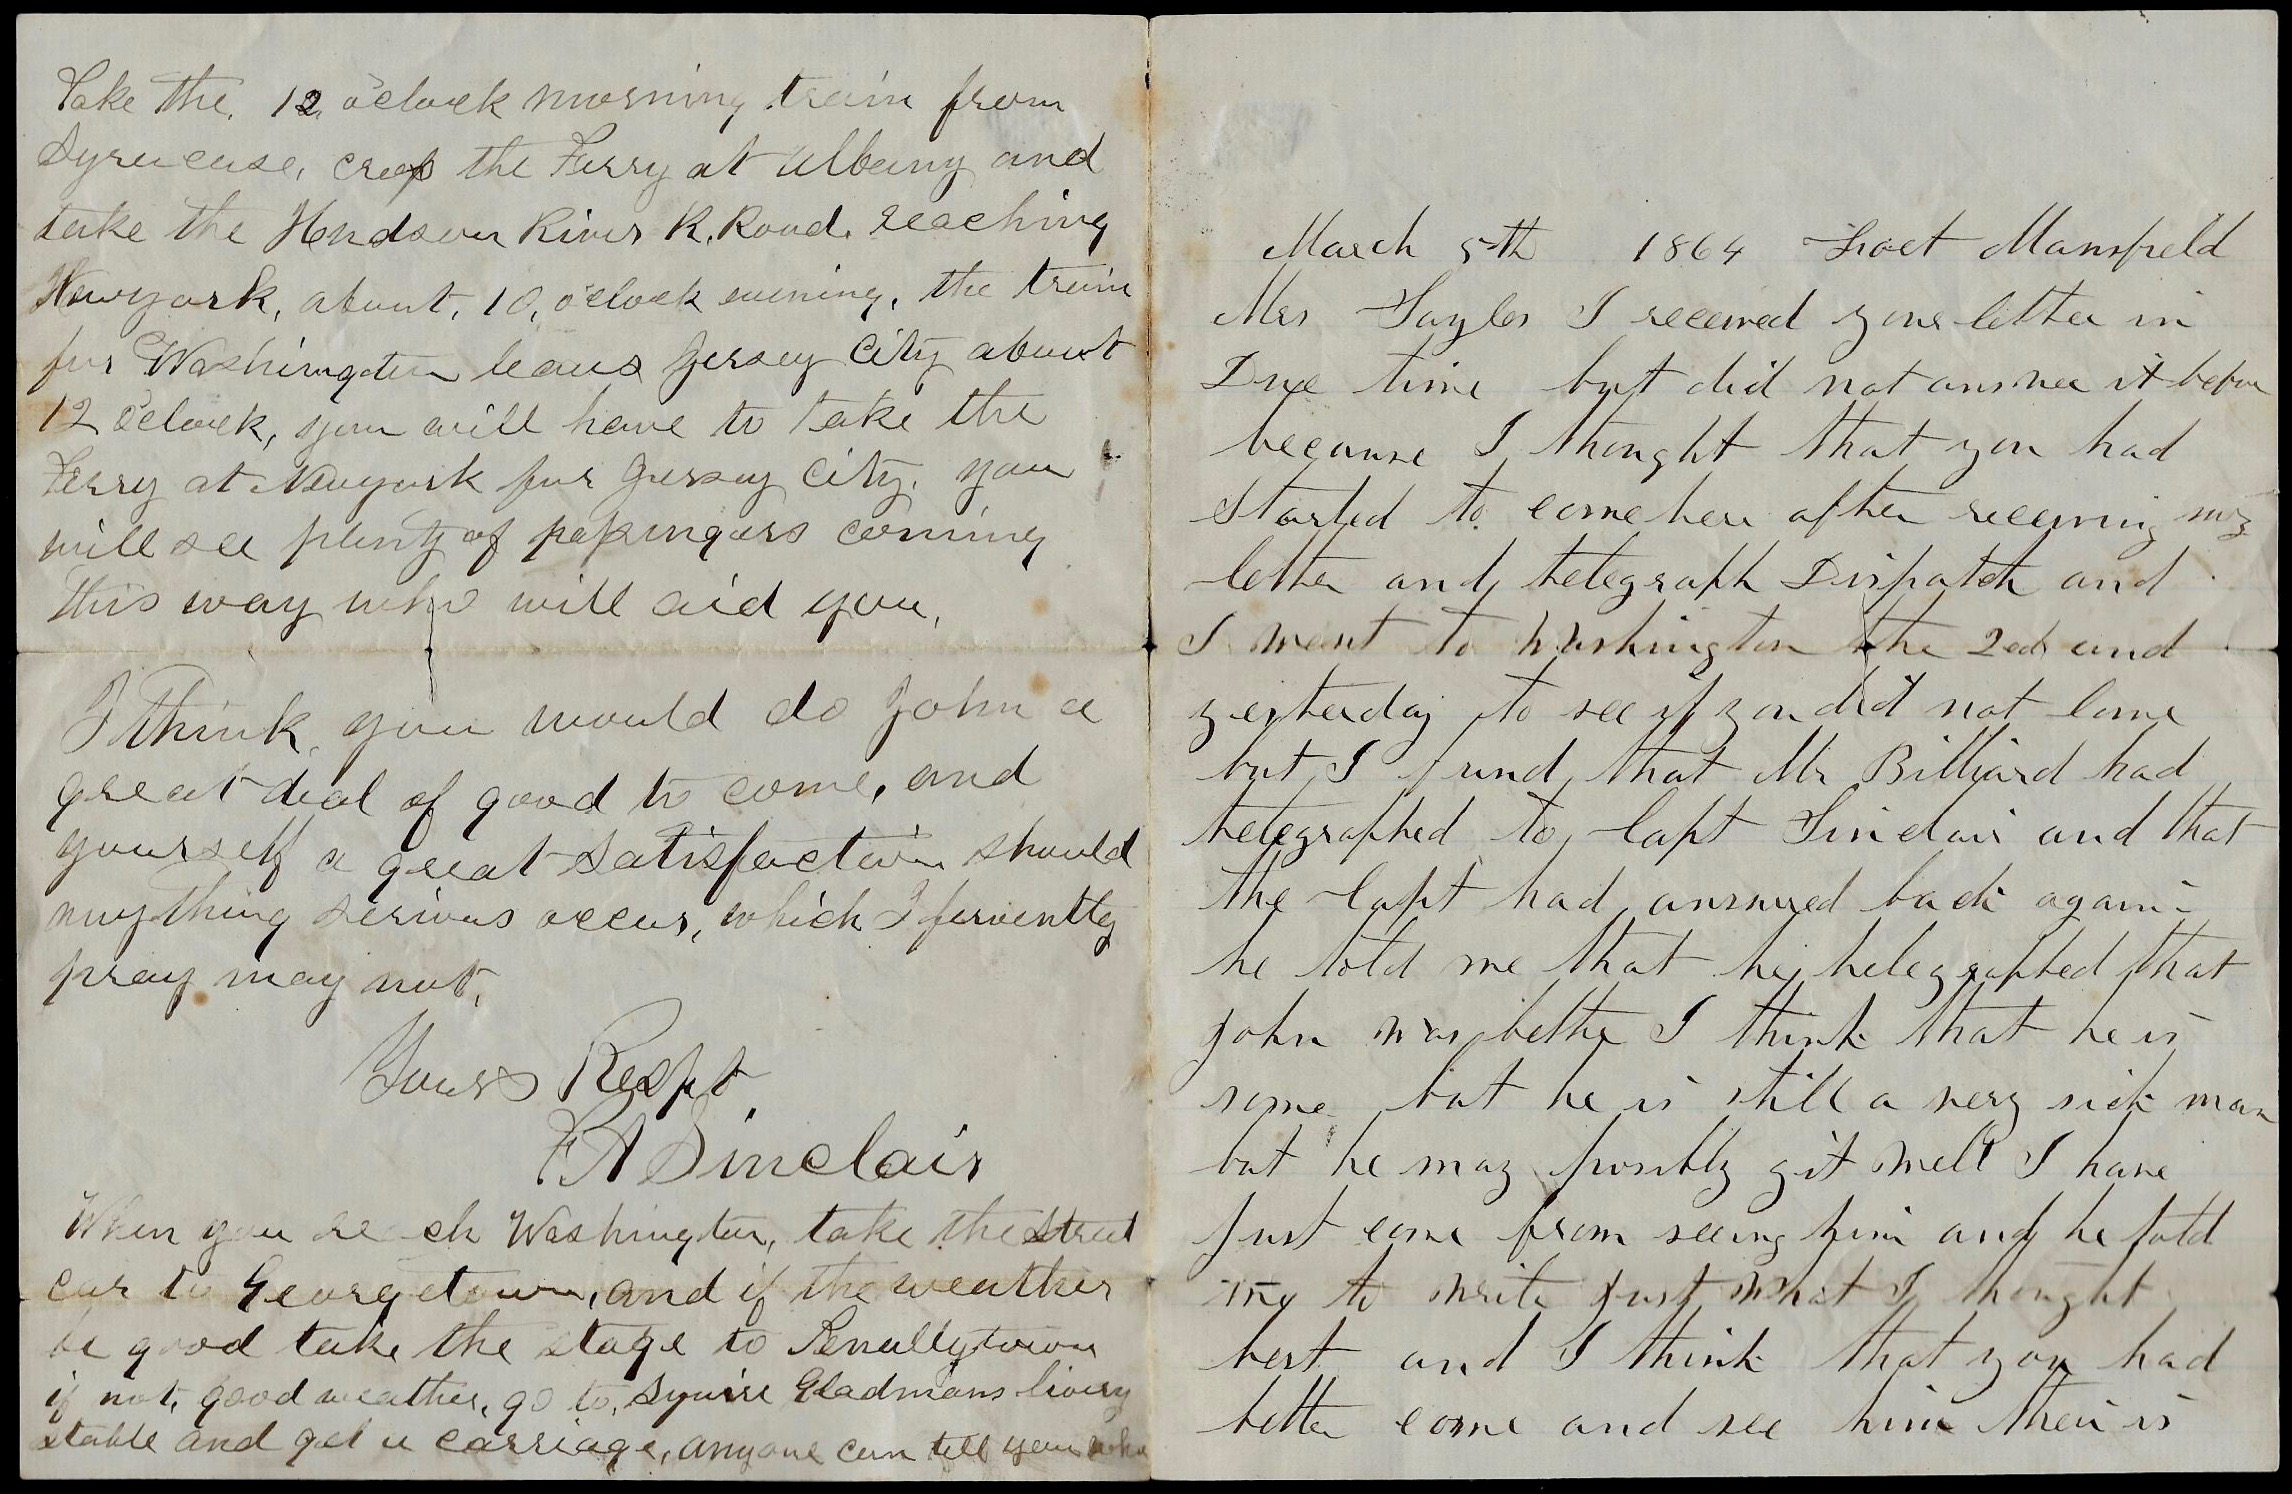 Take the, 12, o'clock morning train from
Syracuse, cross the Ferry at Albany and
take the Hudson River R. Road. reaching
Newyork, about, 10, o'clock evening, the train
for Washington leaves Jersey City about
12 o'clock, you will have to take the
Ferry at Newyork for Jersey City. you
will see plenty of passingers coming
this way who will aid you,
I think, you would do John a
great deal of good to come, and
yourself a great satisfaction should
anything serious occur, which I fervently
pray may not,
Yours Respt
F A Sinclair
When you reach Washington, take the Street
car to Georgetown, and if the weather
be good take the stage to Tenallytown
if not, good weather, go to, Squire Gladmans livery
stable and get a carriage, anyone can tell you who
March 5th 1864 Foet Mansfield
Mrs Taylor I received your letter in
Due time but did not answer it before
because I thought that you had
Started to come here after receiving my
letter and telegraph Dispatch and
I went to Washington the 2ed and
yesterday to see if you did not come
but I fund that Mr Billiard had
telegraphed to Capt Sinclair and that
the Capt had answered back again
he told me that he telegraphed that
John was better I think that he is
some but he is still a very sick man
but he may possibly git well I have
Just come from seeing him and he told
me to write Just what I thought
best and I think that you had
better come and see him their is